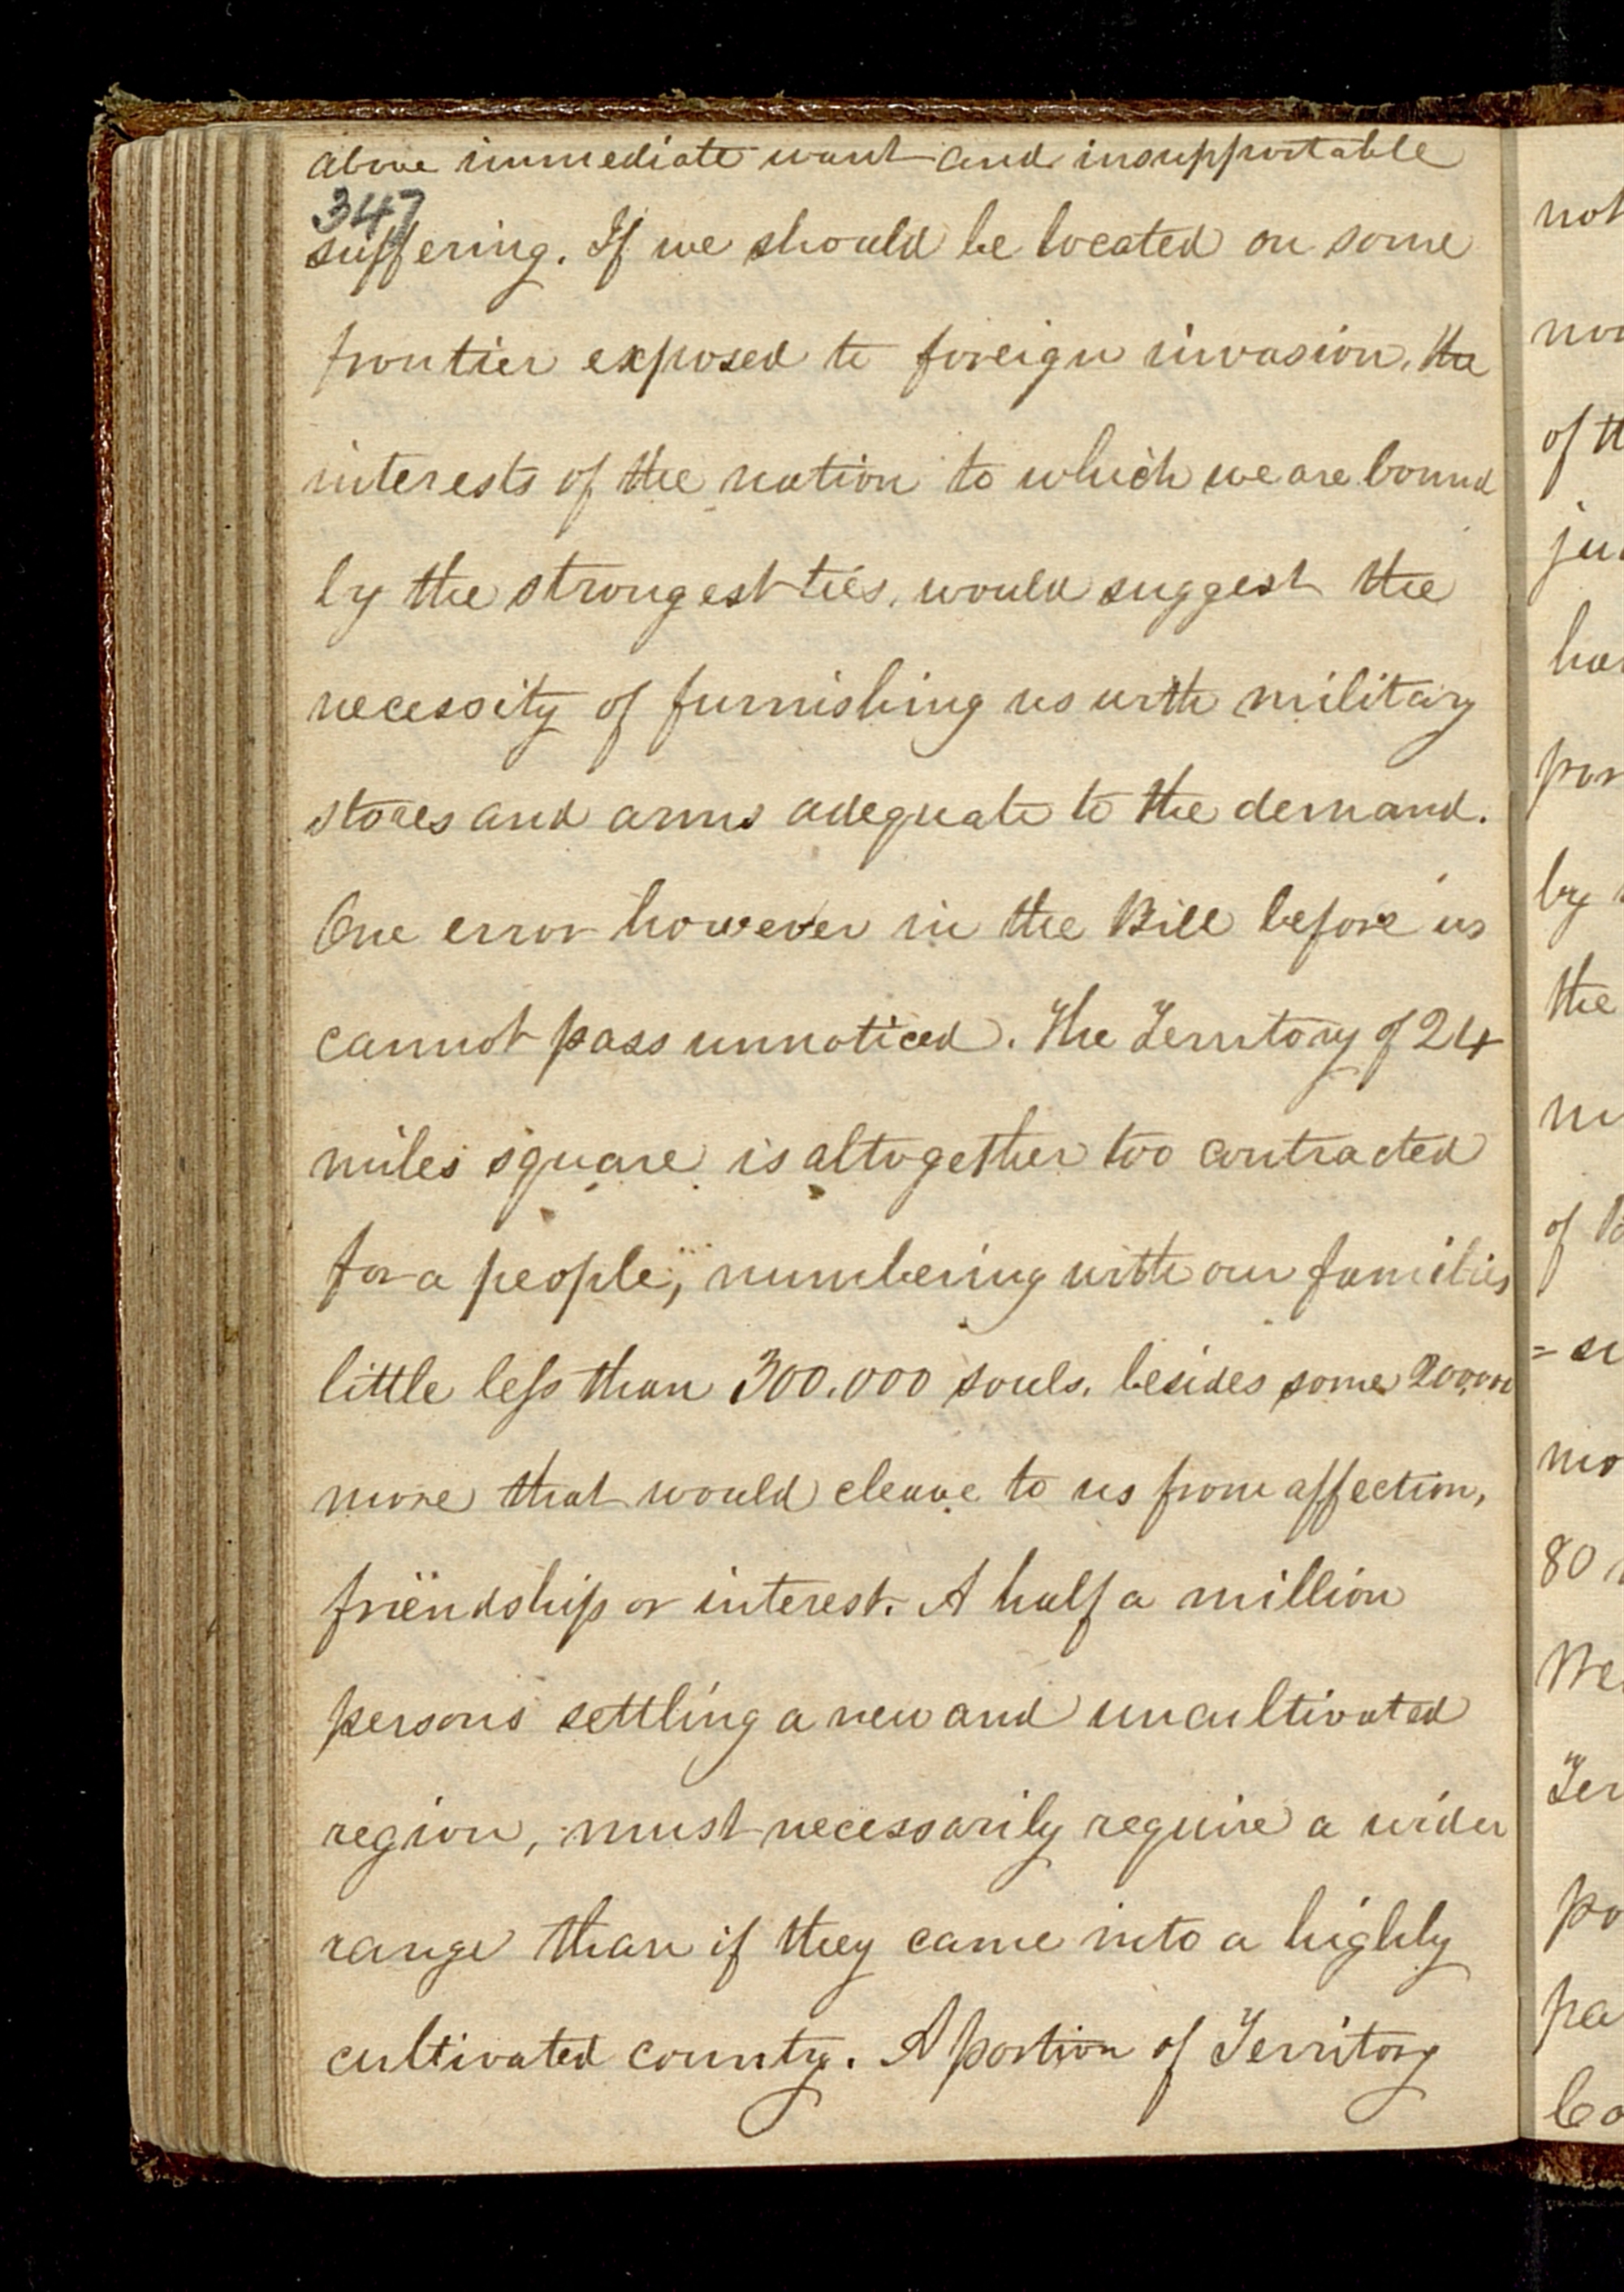 above immediate want and insupportable
347
suffering. If we should be located on some
frontier exposed to foreign invasion, the
interests of the nation to which we are bound
by the strongest ties, would suggest the
necessity of furnishing us with military
stores and arms adequate to the demand.
One error however in the Bill before us
cannot pass unnoticed. The Territory of 24
miles square is altogether too contracted
for a people, numbering with our families
little less than 300.000 souls, besides some 200,000
more that would cleave to us from affection,
friendship or interest. A half a million
persons settling a new and uncultivated
region, must necessarily require a wider
range than if they came into a highly
cultivated county. A portion of Territory
not
of th
by
the
of
mo
80
Ter
po
pa
Co